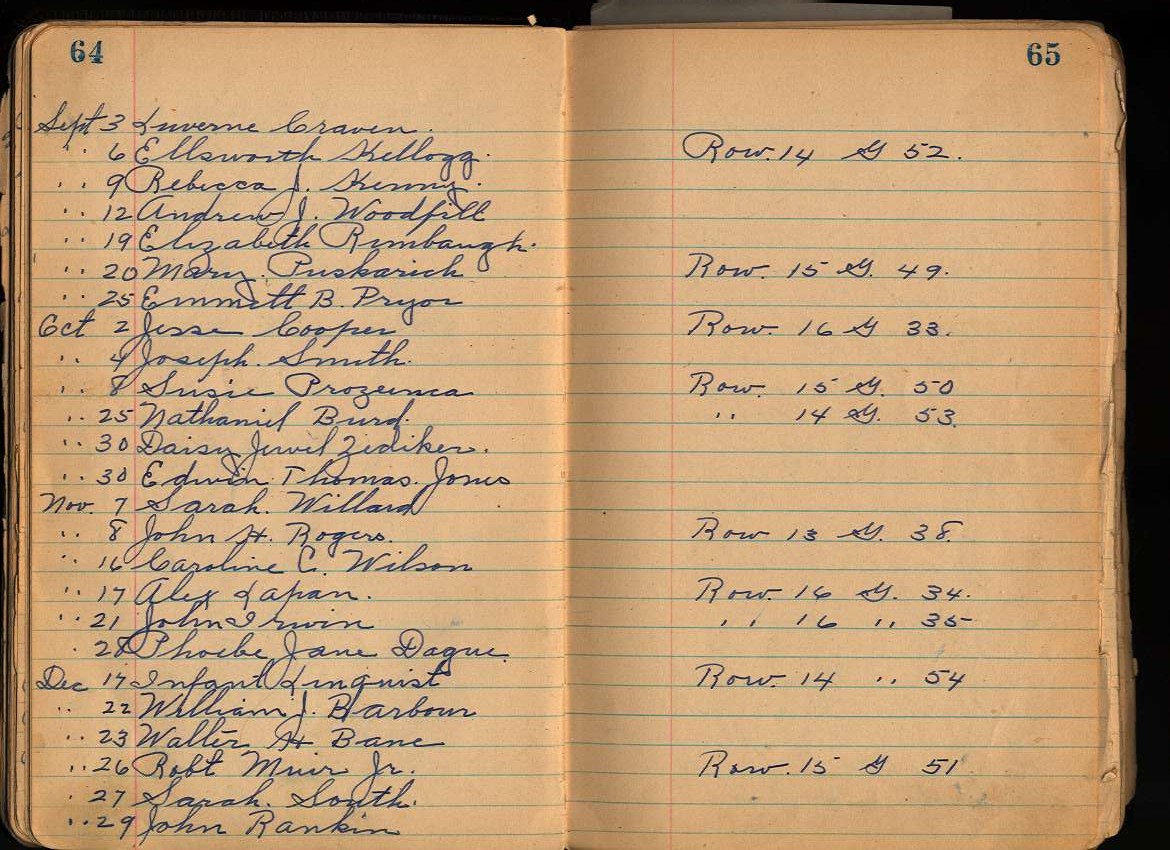 64
65
Sept 3 Luverne Craven.
" 6 Ellsworth Kellogg. Row. 14 G 52.
" 9 Rebecca J. Kenny.
" 12 Andrew J. Woodfill
" 19 Elizabeth Rimbaugh.
" 20 Mary. Puskarich Row. 15 G. 49.
" 25 Emmett B. Pryor
Oct 2 Jesse Cooper Row. 16 G 33.
" 4 Joseph. Smith.
" 8 Susie Row. 15 G. 50
" 25 Nathaniel Burd. " 14 G. 53.
" 30 Daisy Jewel Zediker.
" 30 Edwin Thomas. Jones
Nov. 7 Sarah. Willard
" 8 John H. Rogers. Row 13 G. 38.
" 16 Caroline C. Wilson
" 17 Alex Lapan. Row. 16 G. 34.
" 21 John Irwin " 16 " 35
" 28 Phoebe Jane Dague.
Dec 17 Infant Linquist Row. 14 " 54
" 22 William J. Barbour
" 23 Walter H Bane
" 26 Robt Muir Jr. Row. 15 G 51
" 27 Sarah. South.
" 29 John Rankin